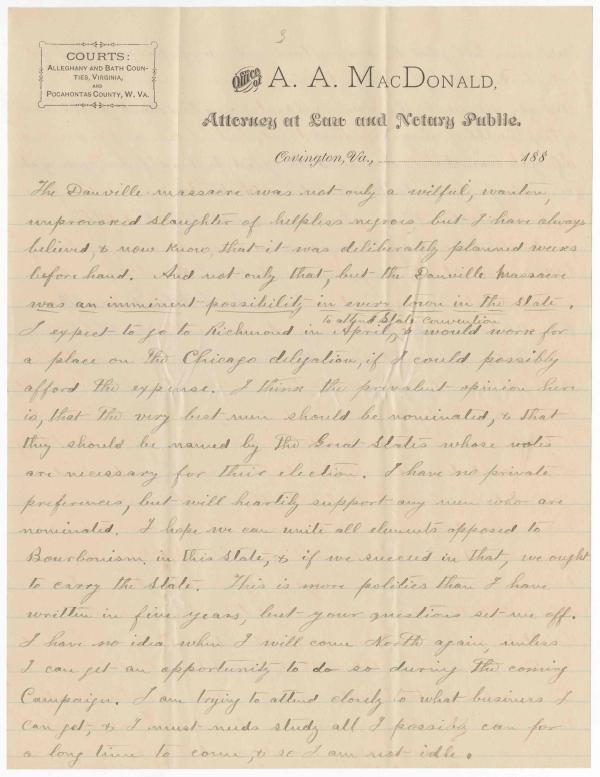 3
COURTS:
ALLEGHANY AND BATH COUN-
TIES, VIRGINIA,
AND
POCAHONTAS COUNTY, W. VA.
Office of A. A. MACDONALD,
Attorney at Law and Notary Public.
Covington, Va., 188
The Danville massacre was not only a wilful, wanton,
unprovoked slaughter of helpless negroes, but I have always
believed, & now know, that it was deliberately planned weeks
before hand. And not only that, but the Danville Massacre
was an imminent possibility in every town in the state.
to attend State Convention
I expect to go to Richmond in April, & would work for
a place on the Chicago delegation, if I could possibly
afford the expense. I think the prevalent opinion here
is, that the very best men should be nominated, & that
they should be named by the Great States whose votes
are necessary for their election. I have no private
preferences, but will heartily support any men who are
nominated. I hope we can unite all elements opposed to
Bourbonism in this State, & if we succeed in that, we ought
to carry the State. This is more politics than I have
written in five years, but your questions set me off.
I have no idea when I will come North again, unless
I can get an opportunity to do so during the coming
Campaign. I am trying to attend closely to what business I
can get, & I must needs study all I possibly can for
a long time to come, & so I am not idle.